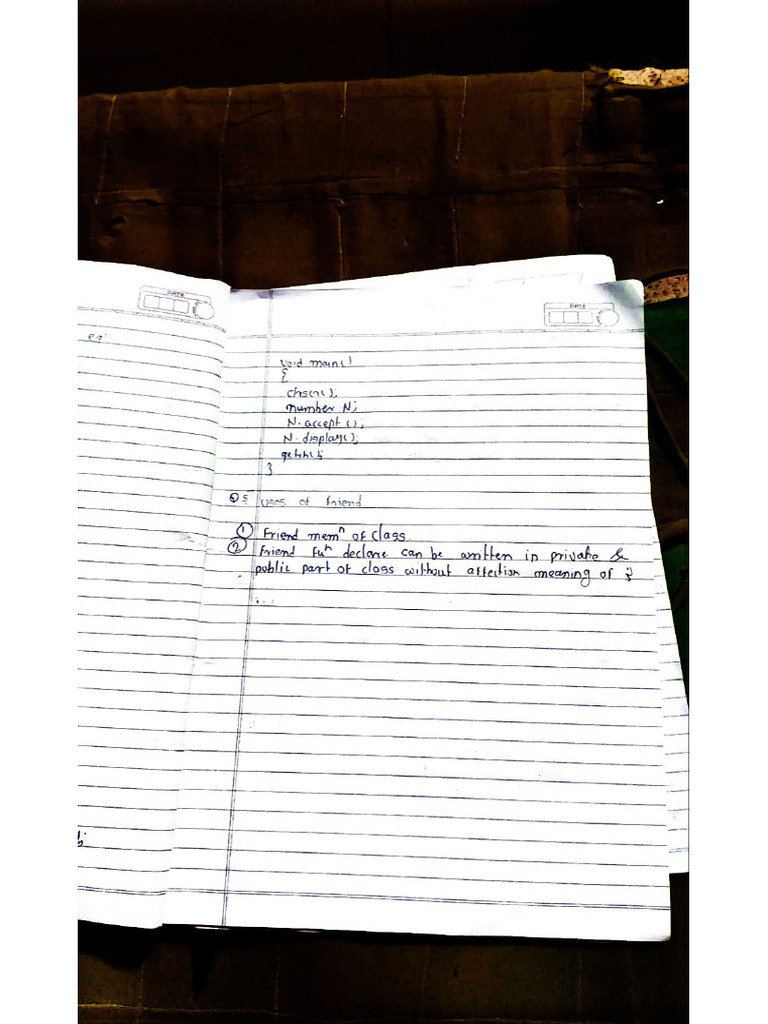 eg:
void main()
{
clrscr();
number N;
N.accept();
N.display();
getch();
}
Q5 uses of friend
① Friend memⁿ of class.
② Friend fuⁿ declare can be written in private &
public part of class without affection meaning of it
...